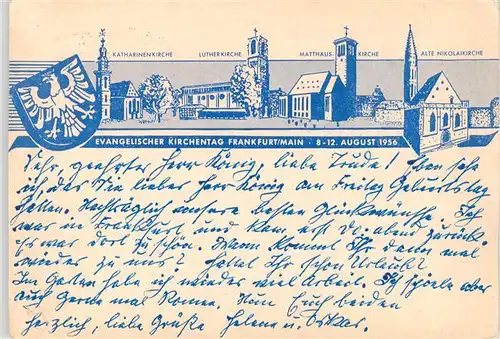 KATHARINENKIRCHE LUTHERKIRCHE MATTHÄUS-KIRCHE ALTE NIKOLAIKIRCHE
EVANGELISCHER KIRCHENTAG FRANKFURT/MAIN · 8-12. AUGUST 1956
Sehr geehrter Herr König, liebe Trude! Eben sehe
ich, das Sie lieber Herr König am Freitag Geburtstag
hatten. Nachträglich unsere besten Glückwünsche. Ich
war in Frankfurt und kam erst Di. abend zurück.
Es war dort zu schön. Wann kommt Ihr denn mal
wieder zu uns? Hattet Ihr schon Urlaub?
Im Garten habe ich wieder viel Arbeit. Ich
auch gerne mal kommen. Nun Euch beiden
herzlich, liebe Grüße Helene u. Oskar.